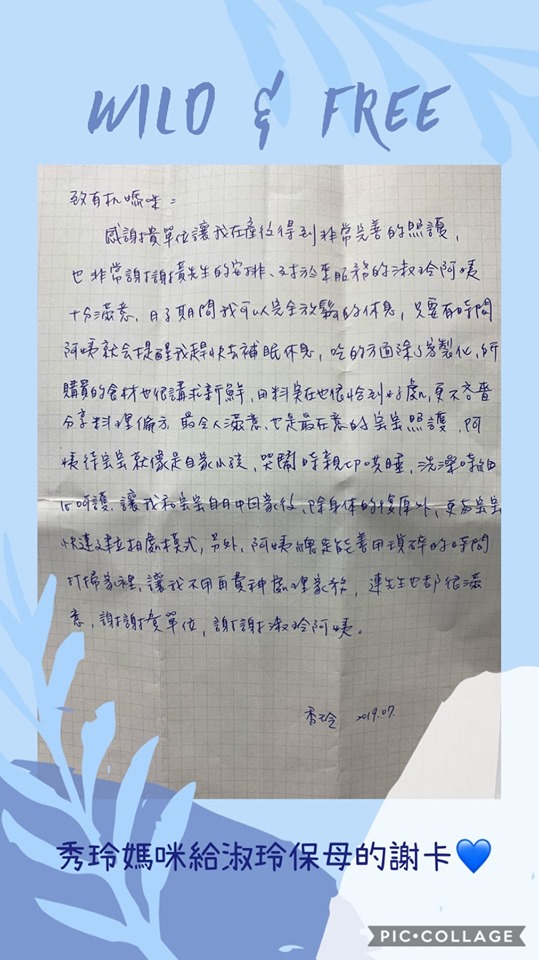 WILD & FREE
致有机媽咪：
感謝貴單位讓我在產後得到非常完善的照護，
也非常謝謝貴先生的安排、對於來服務的淑玲阿姨
十分滿意，月子期間我可以完全放鬆的休息，只要有時間
阿姨就會提醒我趕快去補眠休息，吃的方面除了客製化，所
購買的食材也很講求新鮮，用料実在也很恰到好處，更不吝嗇
分享料理偏方 最令人滿意、也是最在意的宝宝照護，阿
姨待宝宝就像是自家小孩，哭鬧時親叩哄睡，洗澡時細
心呵護，讓我和宝宝自月中回家後，除身体的復原外，更與宝宝
快速建立相處模式，另外，阿姨總是能善用瑣碎的時間
打掃家裡，讓我不用再費神處理家務，連先生也都很滿
意，謝謝貴單位，謝謝淑玲阿姨。
秀玲 2019.07.
秀玲媽咪給淑玲保母的謝卡💙
PIC•COLLAGE